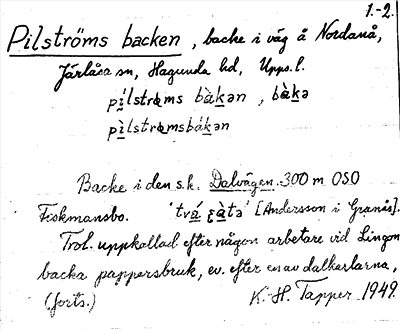 1.-2.
Pilströms backen, backe i väg å Nordanå,
Järlåsa sn, Hagunda hd, Upps. l.
pílstrəms bàkən, bàkə
pìlstrəmsbákən
Backe i den s.k. Dalvägen. 300 m OSO
Fiskmansbo. [Andersson i Granås].
Trol. uppkallad efter någon arbetare vid Lingon
backa pappersbruk, ev. efter en av dalkarlarna,
(forts.) K.-H. Tapper 1949.